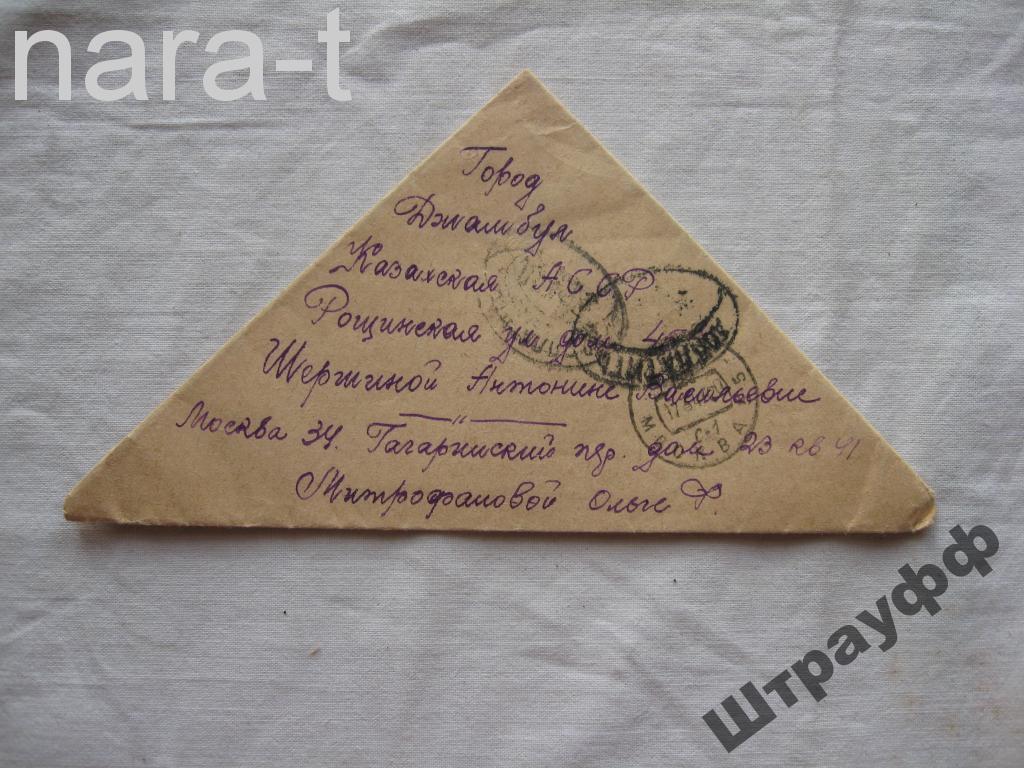 nara-t
Город
Джамбул
Казахская АССР
Рощинская ул дом
Шершиной Антонине Васильевне
— " —
Москва 34. Гагаринский пер. дом 23 кв 41
Митрофановой Ольге Ф.
МОСКВА
Штрауфф